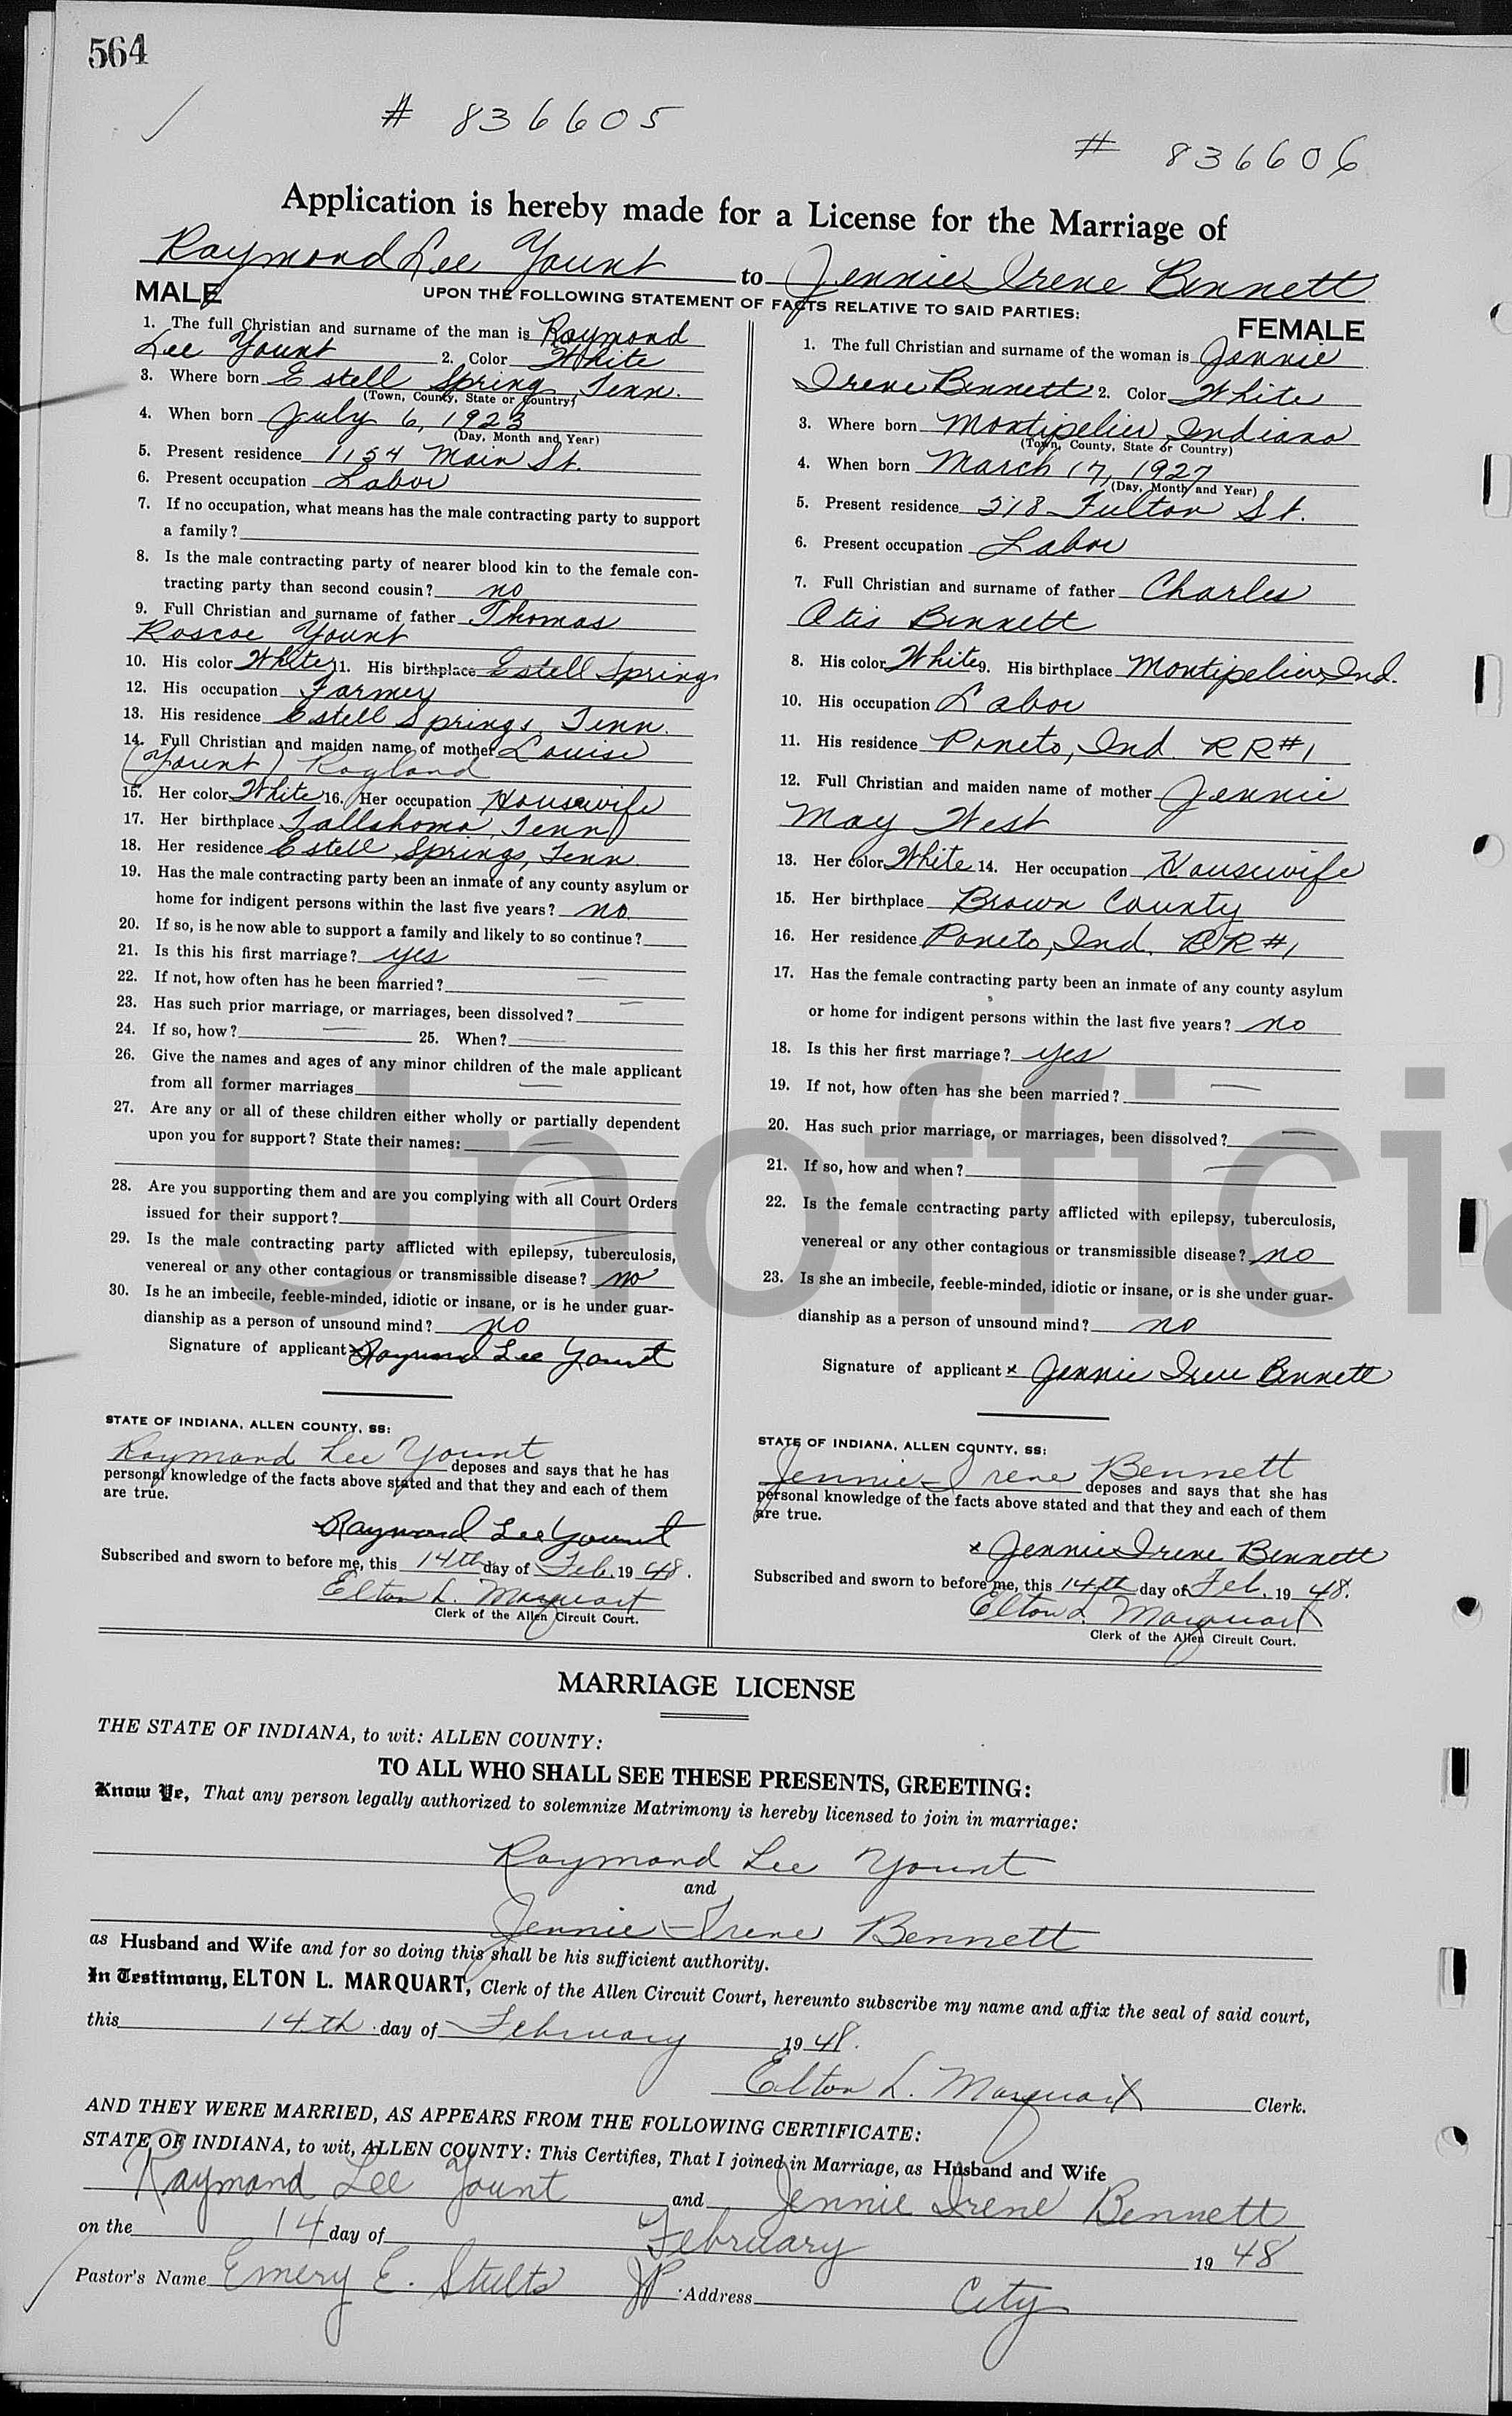 564
# 836605
# 836606
Application is hereby made for a License for the Marriage of
Raymond Lee Yount to Jennie Irene Bennett
UPON THE FOLLOWING STATEMENT OF FACTS RELATIVE TO SAID PARTIES:
MALE
1. The full Christian and surname of the man is Raymond
Lee Yount 2. Color White
3. Where born Estell Spring Tenn.
(Town, County, State or Country)
4. When born July 6, 1923
(Day, Month and Year)
5. Present residence 1154 Main St.
6. Present occupation Labor
7. If no occupation, what means has the male contracting party to support
a family?
8. Is the male contracting party of nearer blood kin to the female con-
tracting party than second cousin? no
9. Full Christian and surname of father Thomas
Roscoe Yount
10. His color White 11. His birthplace Estell Springs
12. His occupation Farmer
13. His residence Estell Springs, Tenn.
14. Full Christian and maiden name of mother Louise
(Yount) Ragland
15. Her color White 16. Her occupation Housewife
17. Her birthplace Tallahoma, Tenn
18. Her residence Estell Springs, Tenn
19. Has the male contracting party been an inmate of any county asylum or
home for indigent persons within the last five years? no
20. If so, is he now able to support a family and likely to so continue?
21. Is this his first marriage? yes
22. If not, how often has he been married? —
23. Has such prior marriage, or marriages, been dissolved? —
24. If so, how? — 25. When? —
26. Give the names and ages of any minor children of the male applicant
from all former marriages —
27. Are any or all of these children either wholly or partially dependent
upon you for support? State their names: —
28. Are you supporting them and are you complying with all Court Orders
issued for their support? —
29. Is the male contracting party afflicted with epilepsy, tuberculosis,
venereal or any other contagious or transmissible disease? no
30. Is he an imbecile, feeble-minded, idiotic or insane, or is he under guar-
dianship as a person of unsound mind? no
Signature of applicant x Raymond Lee Yount
STATE OF INDIANA, ALLEN COUNTY, SS:
Raymond Lee Yount deposes and says that he has
personal knowledge of the facts above stated and that they and each of them
are true.
x Raymond Lee Yount
Subscribed and sworn to before me, this 14th day of Feb. 1948.
Elton L. Marquart
Clerk of the Allen Circuit Court.
FEMALE
1. The full Christian and surname of the woman is Jennie
Irene Bennett 2. Color White
3. Where born Montipelier Indiana
(Town, County, State or Country)
4. When born March 17, 1927
(Day, Month and Year)
5. Present residence 518 Fulton St.
6. Present occupation Labor
7. Full Christian and surname of father Charles
Otis Bennett
8. His color White 9. His birthplace Montipelier, Ind.
10. His occupation Labor
11. His residence Poneto, Ind. RR#1
12. Full Christian and maiden name of mother Jennie
May West
13. Her color White 14. Her occupation Housewife
15. Her birthplace Brown County
16. Her residence Poneto, Ind. RR#1
17. Has the female contracting party been an inmate of any county asylum
or home for indigent persons within the last five years? no
18. Is this her first marriage? yes
19. If not, how often has she been married? —
20. Has such prior marriage, or marriages, been dissolved? —
21. If so, how and when? —
22. Is the female contracting party afflicted with epilepsy, tuberculosis,
venereal or any other contagious or transmissible disease? no
23. Is she an imbecile, feeble-minded, idiotic or insane, or is she under guar-
dianship as a person of unsound mind? no
Signature of applicant x Jennie Irene Bennett
STATE OF INDIANA, ALLEN COUNTY, SS:
Jennie Irene Bennett deposes and says that she has
personal knowledge of the facts above stated and that they and each of them
are true.
x Jennie Irene Bennett
Subscribed and sworn to before me, this 14th day of Feb. 1948.
Elton L. Marquart
Clerk of the Allen Circuit Court.
Unofficia
MARRIAGE LICENSE
THE STATE OF INDIANA, to wit: ALLEN COUNTY:
TO ALL WHO SHALL SEE THESE PRESENTS, GREETING:
Know Ye, That any person legally authorized to solemnize Matrimony is hereby licensed to join in marriage:
Raymond Lee Yount
and
Jennie Irene Bennett
as Husband and Wife and for so doing this shall be his sufficient authority.
In Testimony, ELTON L. MARQUART, Clerk of the Allen Circuit Court, hereunto subscribe my name and affix the seal of said court,
this 14th day of February 1948.
Elton L. Marquart Clerk.
AND THEY WERE MARRIED, AS APPEARS FROM THE FOLLOWING CERTIFICATE:
STATE OF INDIANA, to wit, ALLEN COUNTY: This Certifies, That I joined in Marriage, as Husband and Wife
Raymond Lee Yount and Jennie Irene Bennett
on the 14 day of February 1948
Pastor's Name Emery E. Stults JP Address City